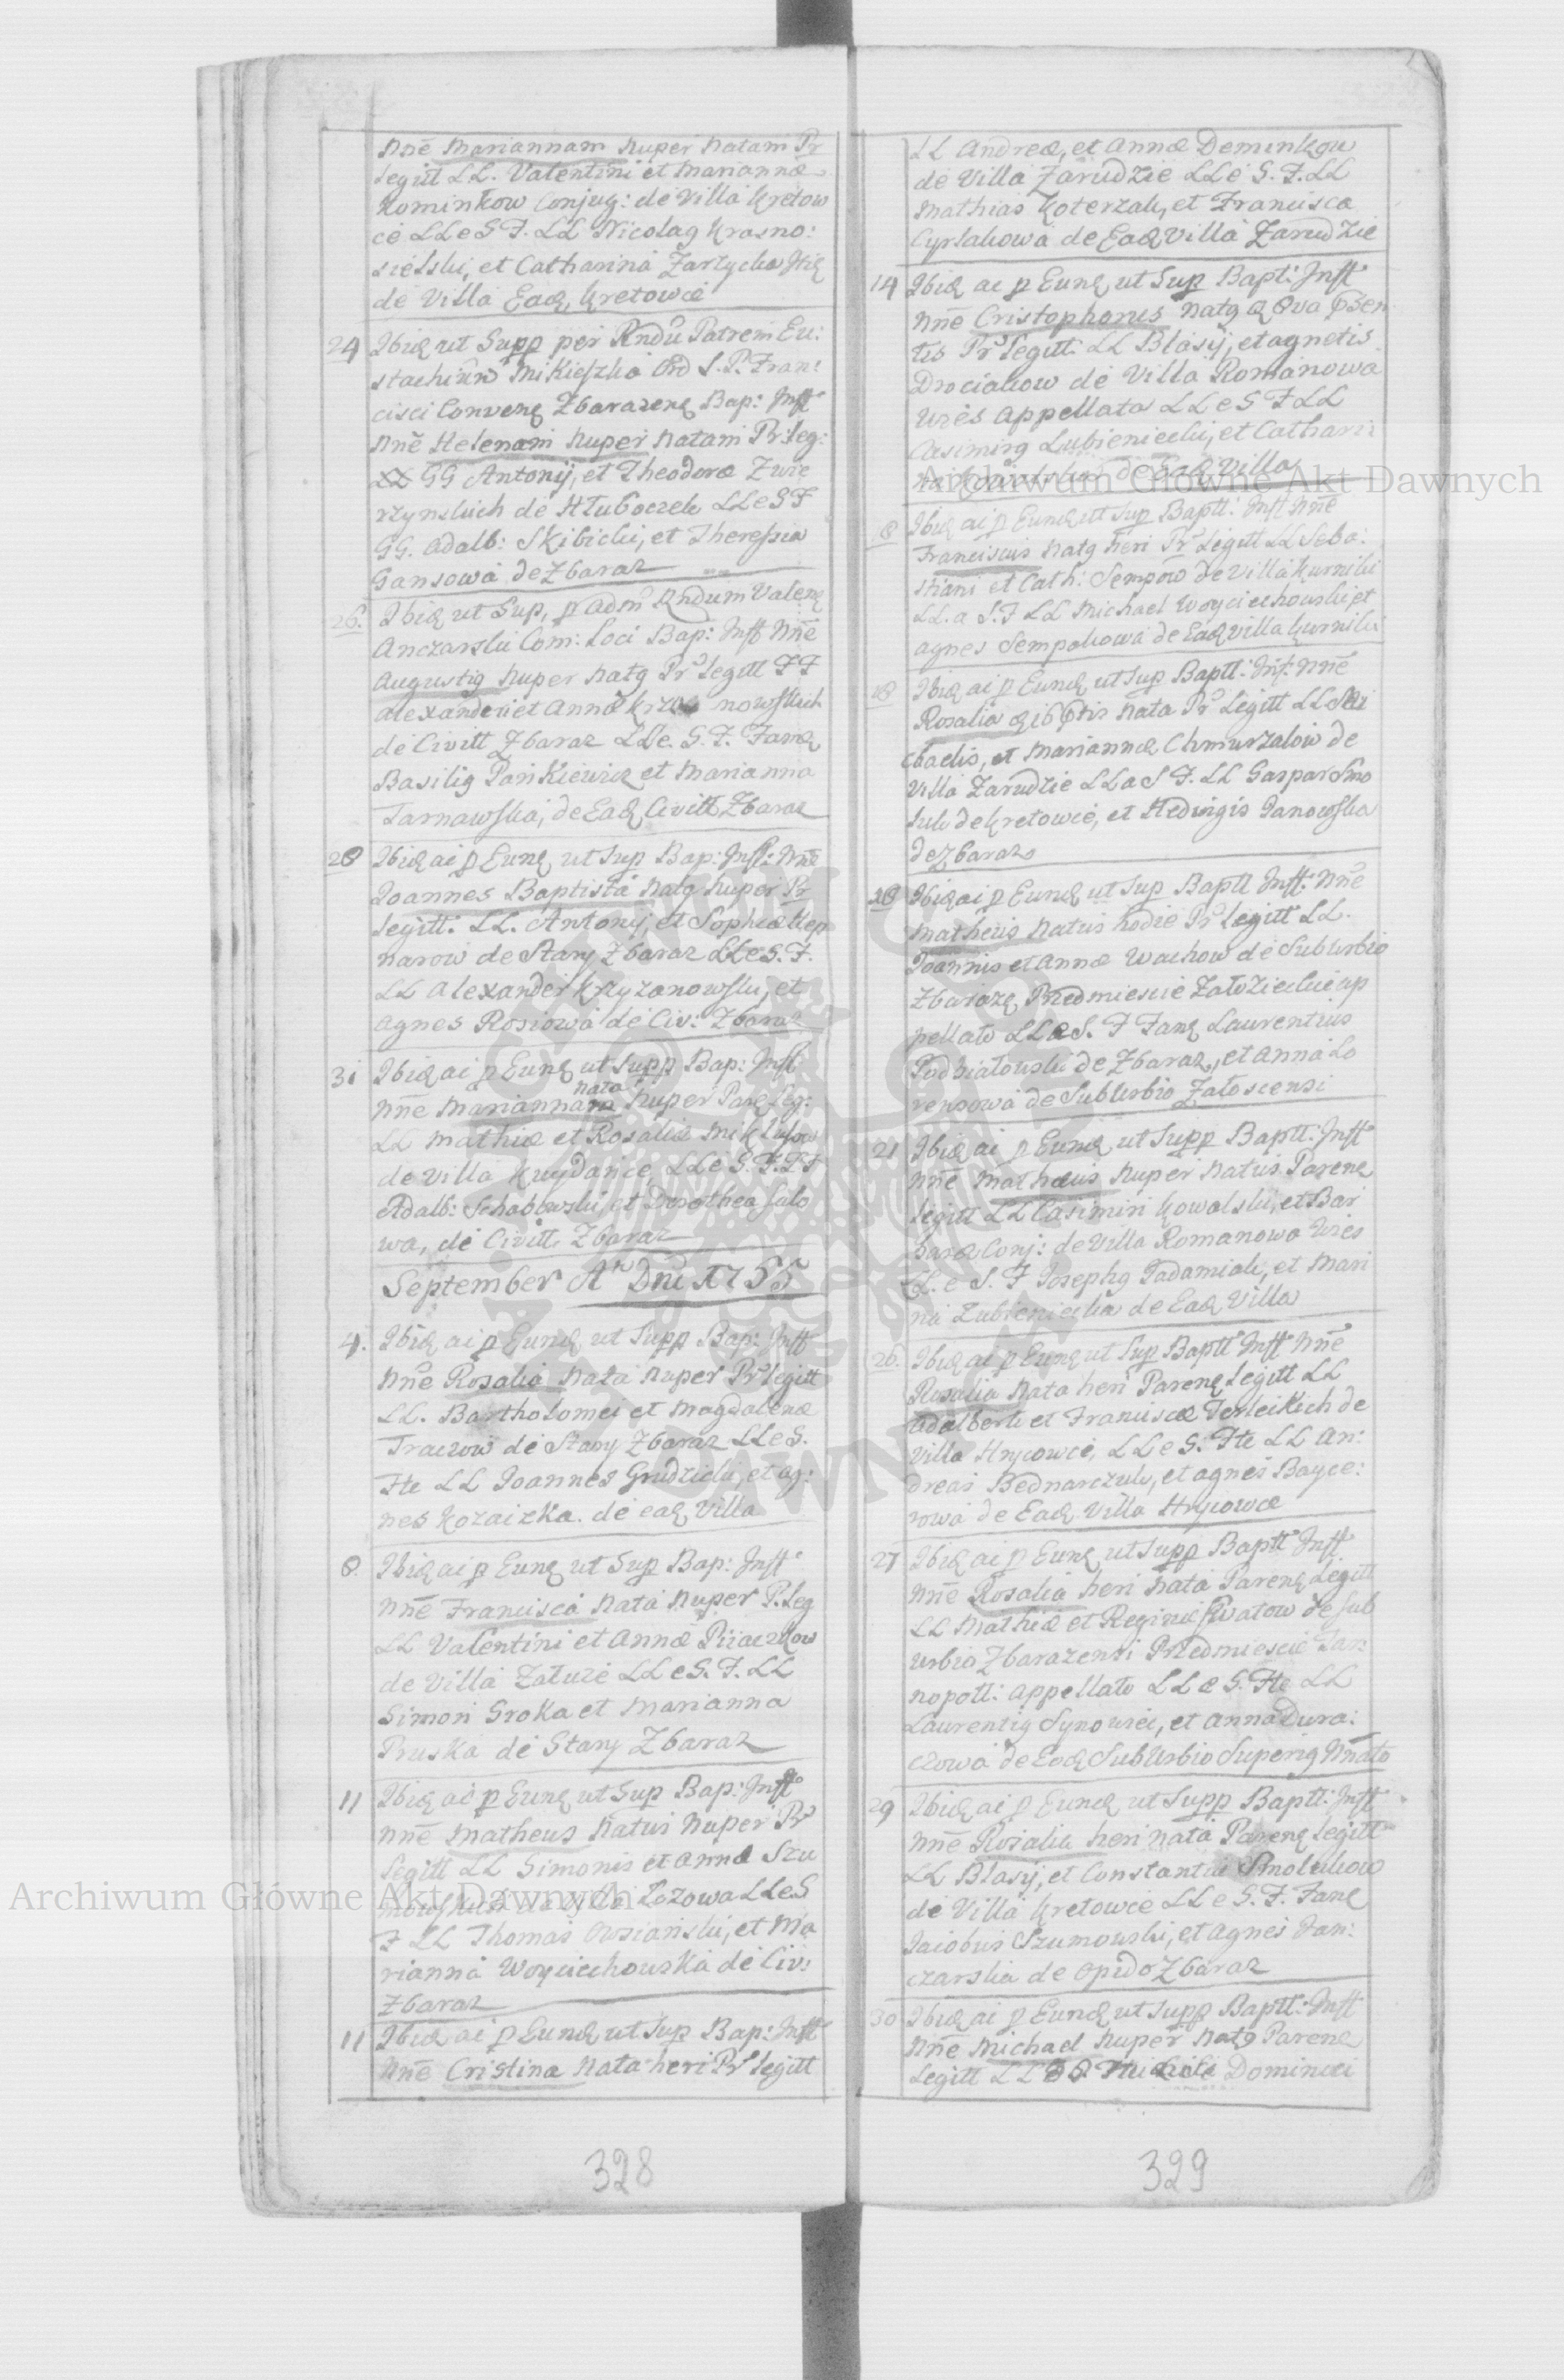 Nnē Mariannam nuper Natam Pr
Legitt LL. Valentini et Mariannæ
Kominkow Conjug: de Villa Kretow
ce LLeSF. LL Nicolaq Krasno:
sielski, et Catharina Zarzycka
de Villa Eadq Kretowce
24 Ibiq ut Supp per Rndū Patrem Eu:
stachium Mikieszka Ord S. P. Fran:
cisci Convenq Zbarazenq Bap: Inft
Nnē Helenam nuper Natam Pr: leg:
LL GG Antonij, et Theodoræ Zwie
rzynskich de Hłuboczek LLeSF
GG. Adalb: Skibicki, et Theressia
Gansowa de Zbaraz
26. Ibiq ut Sup, p Adm Rndum Valenq
Anczarski Com: Loci Bap: Inft Nnē
Augustiq Nuper Natq Pr Legitt FF
Alexandri et Annæ nowskich
de Civitt Zbaraz LLe. S. F. Famq
Basiliq Pankiewicz et Marianna
Tarnawska, de Eadq Civitt Zbaraz
28 Ibiq ai p Eunq ut Sup Bap: Inft: Nnē
Joannes Baptista Natq Nuper Pr
Legitt. LL. Antonij, et Sophiæ Hep
narow de Stary Zbaraz LLeS. F.
LL Alexander Krzyzanowski, et
Agnes Rosiowa de Civ: Zbaraz
31 Ibiq ai p Eunq ut Supp Bap: Inft
nata
Nnē Mariannam Nuper Parq Leg:
LL Mathiæ et Rosaliæ
de Villa Kuydance LLe S. F.
Adalb: Schabowski et Dorothea Salo
wa, de Civitt Zbaraz
September A Dni 1755
4. Ibiq ai p Eundq ut Supp Bap: Inft
Nnē Rosalia Nata nuper Pr legitt
LL. Bartholomei et Magdalenæ
Traczow de Stary Zbaraz LLeS.
Fte LL Joannes Grudzicki, et Ag:
nes Kozaizka. de eadq Villa
8. Ibiq ai p Eunq ut Sup Bap: Inft
Nnē Francisca Nata Nuper P. Leg
LL Valentini et Annæ Piiaczkow
de Villa Załuze LLeS. F. LL
Simon Sroka et Marianna
Pruska de Stary Zbaraz
11 Ibiq ai p Eunq ut Sup Bap: Inft
Nnē Matheus Natus Nuper Pr
Legitt LL Simonis et Annæ Szu
mowskich de Villa Łozowa LLeS
F LL Thomas Owsianski, et Ma
rianna Woyciechowska de Civ:
Zbaraz
11 Ibiq ai p Eundq ut Sup Bap: Inft
Nnē Cristina Nata heri Pr legitt
328
LL Andreæ, et Annæ Deminkow
de Villa Zarudzie LLe S. F. LL
Mathias Koterzak, et Francisca
Cyrlakowa de Eadq Villa Zarudzie
14 Ibiq ai p Eunq ut Sup Bapt: Inft
Nnē Cristophorus Natq
Pr Legitt. LL Blasij, et Agnetis
Drociakow de Villa Romanowa
Wies Appellata LLeSFLL
Casimirq Lubieniecki, et Cathari:
na Kowalska de Eadq Villa
Ibiq ai p Eundq ut Sup Baptt: Inft Nnē
Franciscus Natq heri Pr Legitt LL Seba:
stiani et Cath: Sempow de Villa Kurniki
LL. a S. F LL Michael Woyciechowski et
Agnes Sempakowa de Eadq Villa Kurniki
18 Ibiq ai p Eundq ut Sup Baptt: Inft. Nnē
Rosalia Nata Pr Legitt LL Mi
chaelis, et Mariannæ Chmurzakow de
Villa Zarudzie LLaS F. LL Gaspar Smo
luk de Kretowce, et Hedvigis Janowska
de Zbaraz
18 Ibiq ai p Eundq ut Sup Baptt Inft. Nnē
Matheus Natus hodie Pr Legitt LL.
Joannis et Annæ Wachow de Suburbio
Zbarazq Przedmiescie Załozieckie ap
pellato LLeS. F Famq Laurentius
Podhiałowski de Zbaraz, et Anna Lo
rensowa de Suburbio Załoscensi
21 Ibiq ai p Eunq ut Supp Baptt: Inft
Nnē Mathæus Nuper Natus Parenq
legitt LL Casimiri Kowalski, et Bar
baræ Conj: de Villa Romanowa Wies
LL. e S. F Josephq Padamiak, et Mari
na Lubieniecka de Eadq Villa
26. Ibiq ai p Eunq ut Sup Baptt Inft Nnē
Rosalia Nata heri Parenq Legitt LL
Adalberti et Franciscæ Terleckich de
Villa Hrycowce, LLeS. Fte LL An:
dreas Bednarczuk, et Agnes Bayce:
rowa de Eadq Villa Hrycowce
27 Ibiq ai p Eunq ut Supp Baptt Inft
Nnē Rosalia heri Nata Parenq Legitt
LL Mathiæ et Reginæ Swatow de Sub
urbio Zbarazensi Przedmiescie Tar:
nopoll: Appellato LLeS. Fte LL
Laurentiq Synowiec, et Anna Dura:
czowa de Eodq Suburbio Superiq Nnāto
29 Ibiq ai p Eundq ut Supp Baptt: Inft
Nnē Rosalia heri nata Parenq legitt
LL Blasij, et Constantiæ Smolukow
de Villa Kretowce LLeS. F. Famq
Jacobus Szumowski, et Agnes Jan:
czarska de Opido Zbaraz
30 Ibiq ai p Eundq ut Supp Baptt: Inft
Nnē Michael Nuper Natq Parenq
Legitt LL Dominici
329
Archiwum Główne Akt Dawnych
Archiwum Główne Akt Dawnych